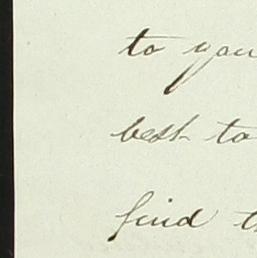 to you
best to
find th